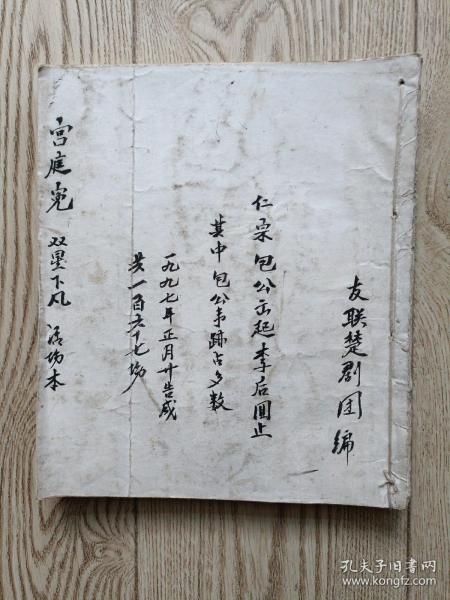 友联楚剧团编
仁宗包公出起李后圆止
其中包公事跡占多数
一九九七年正月廿告成
共一百六十七场
宫庭冤 双星下凡 活场本
孔夫子旧书网
www.kongfz.com